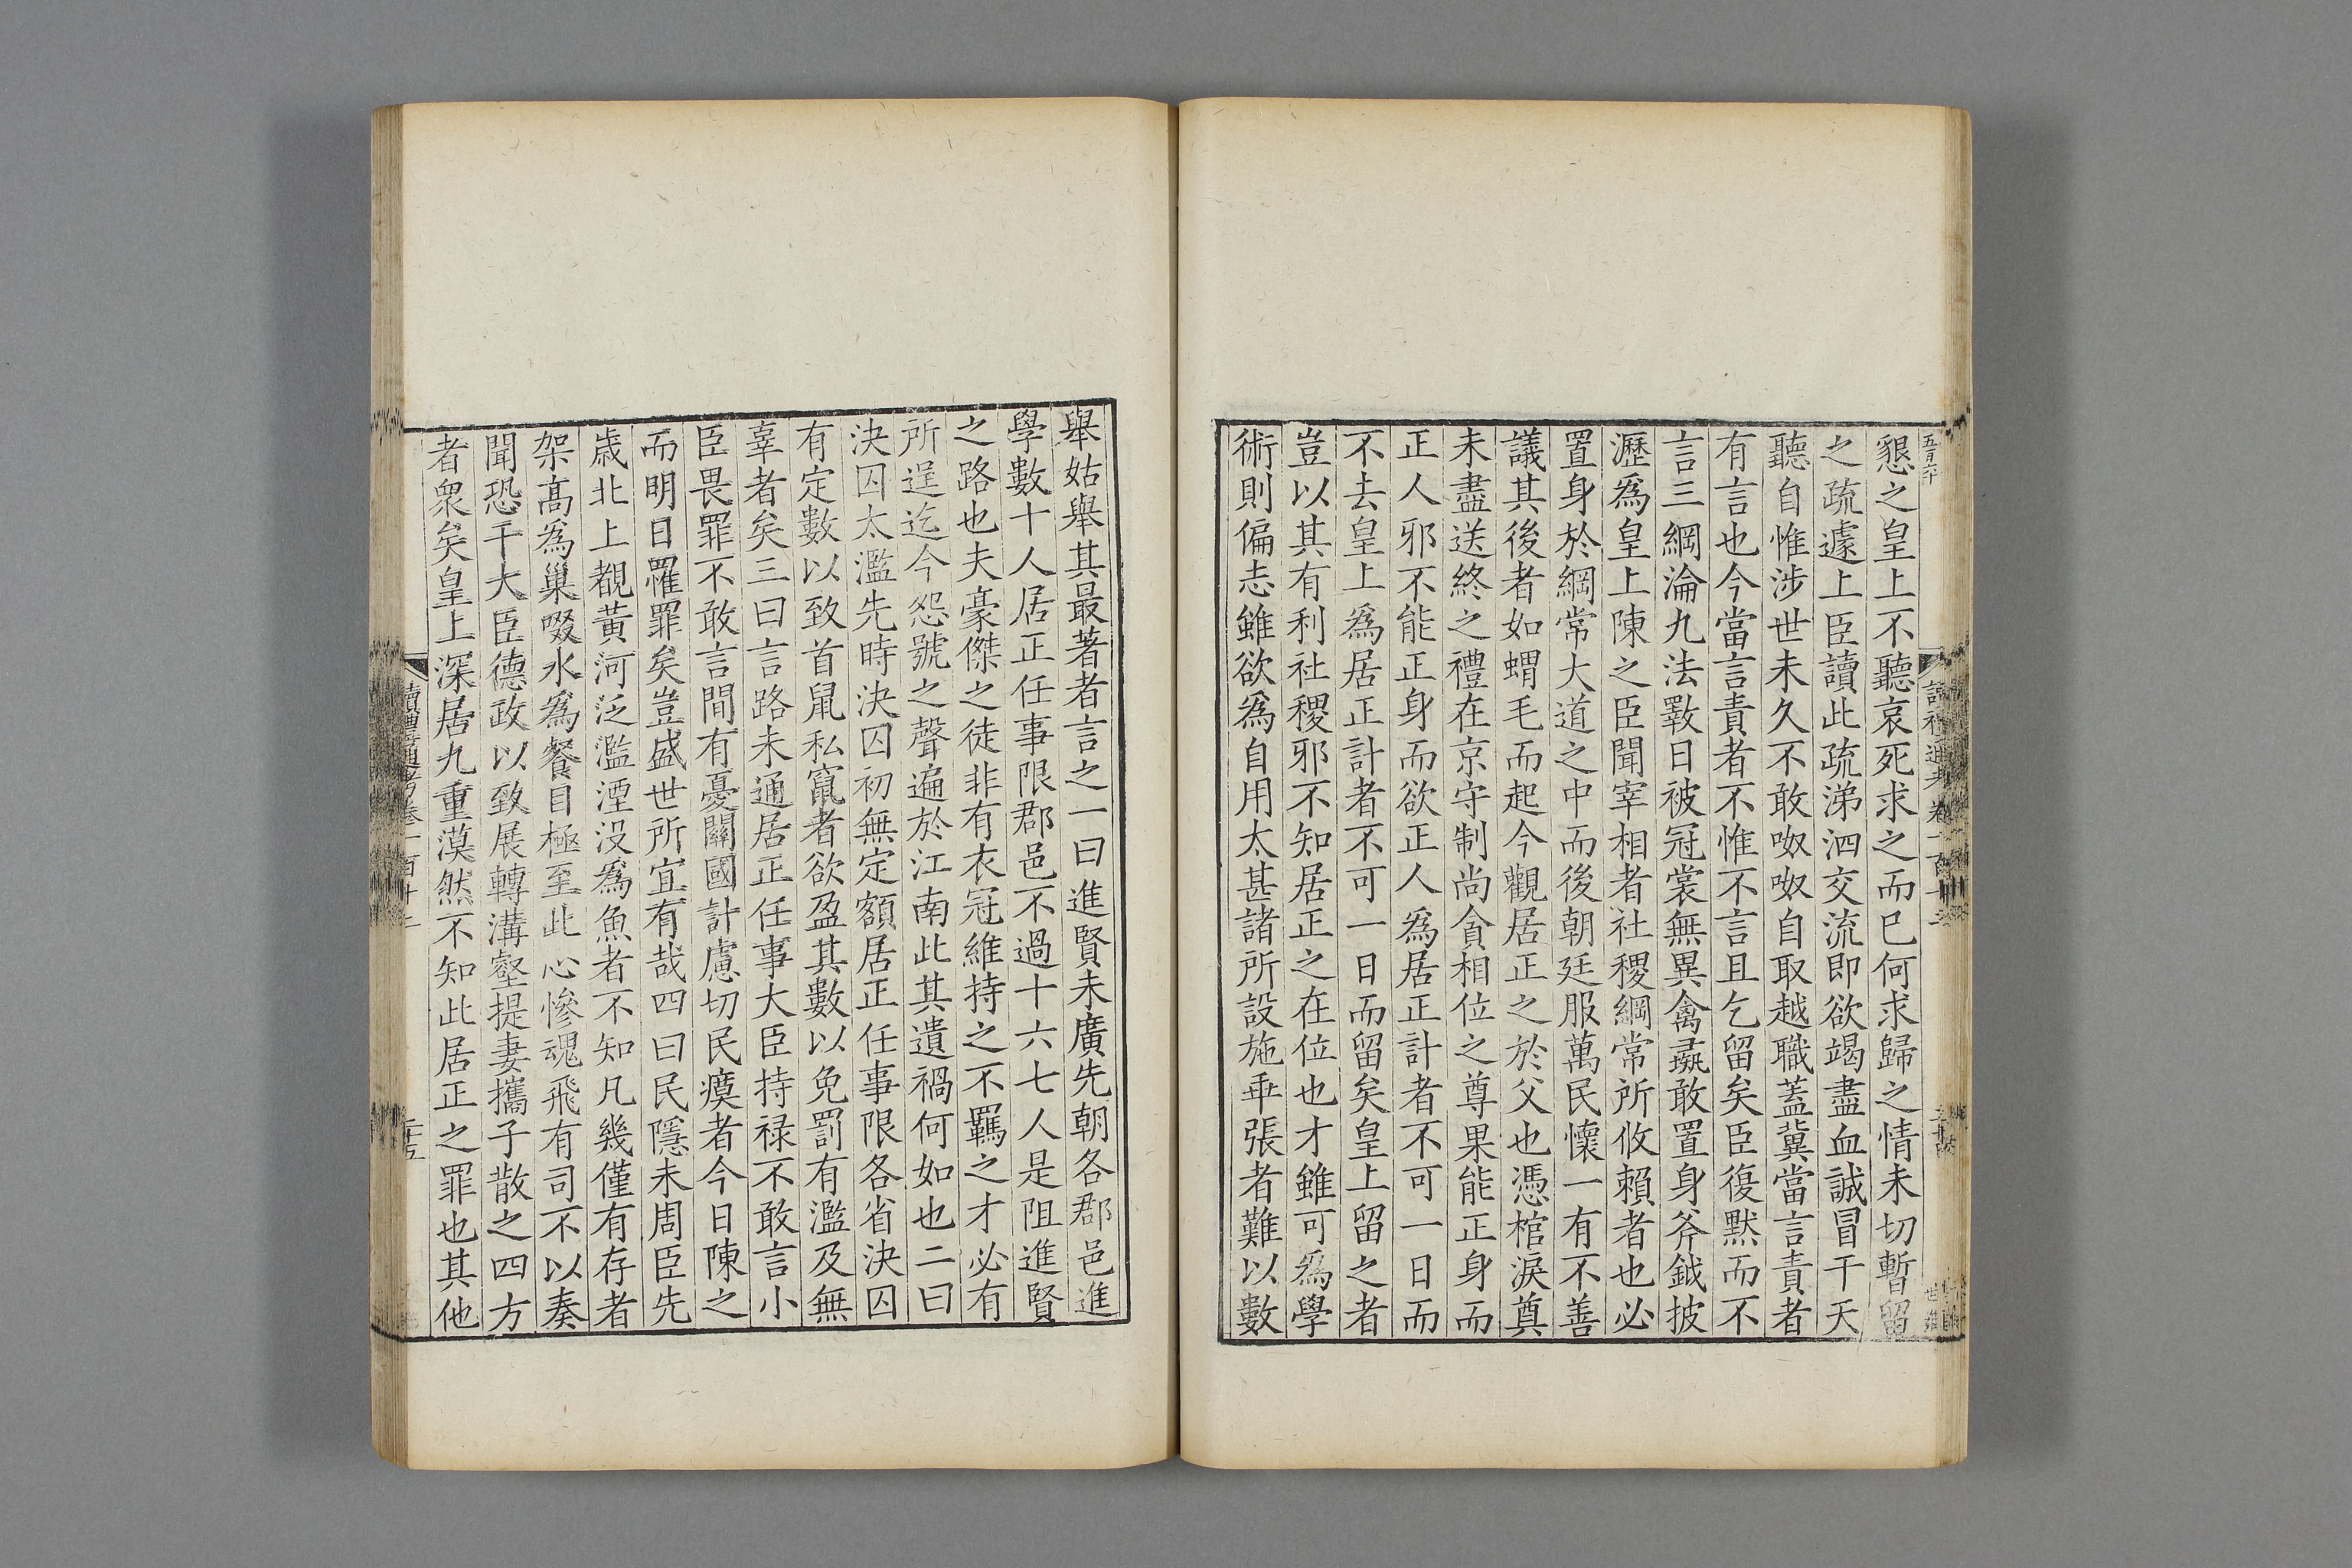 懇之皇上不聽哀死求之而已何求歸之情未切暫留
之疏遽上臣讀此疏涕泗交流即欲竭盡血誠冒干天
聽自惟涉世未久不敢呶呶自取越職蓋冀當言責者
有言也今當言責者不惟不言且乞留矣臣復默而不
言三綱淪九法斁日被冠裳無異禽𩔗敢置身斧鉞披
瀝爲皇上陳之臣聞宰相者社稷綱常所攸賴者也必
置身於綱常大道之中而後朝廷服萬民懷一有不善
議其後者如蝟毛而起今觀居正之於父也憑棺淚奠
未盡送終之禮在京守制尚貪相位之尊果能正身而
正人邪不能正身而欲正人爲居正計者不可一日而
不去皇上爲居正計者不可一日而留矣皇上留之者
豈以其有利社稷邪不知居正之在位也才雖可爲學
術則偏志雖欲爲自用太甚諸所設施乖張者難以數
舉姑舉其最著者言之一曰進賢未廣先朝各郡邑進
學數十人居正任事限郡邑不過十六七人是阻進賢
之路也夫豪傑之徒非有衣冠維持之不羈之才必有
所逞迄今怨號之聲遍於江南此其遺禍何如也二曰
決囚太濫先時決囚初無定額居正任事限各省決囚
有定數以致首鼠私竄者欲盈其數以免罰有濫及無
辜者矣三曰言路未通居正任事大臣持祿不敢言小
臣畏罪不敢言間有憂關國計慮切民瘼者今日陳之
而明日罹罪矣豈盛世所宜有哉四曰民隱未周臣先
歲北上覩黃河泛濫湮沒爲魚者不知凡幾僅有存者
架高爲巢啜水爲餐目極至此心慘魂飛有司不以奏
聞恐干大臣德政以致展轉溝壑提妻攜子散之四方
者眾矣皇上深居九重漠然不知此居正之罪也其他
讀禮通考卷一百十二
二十五